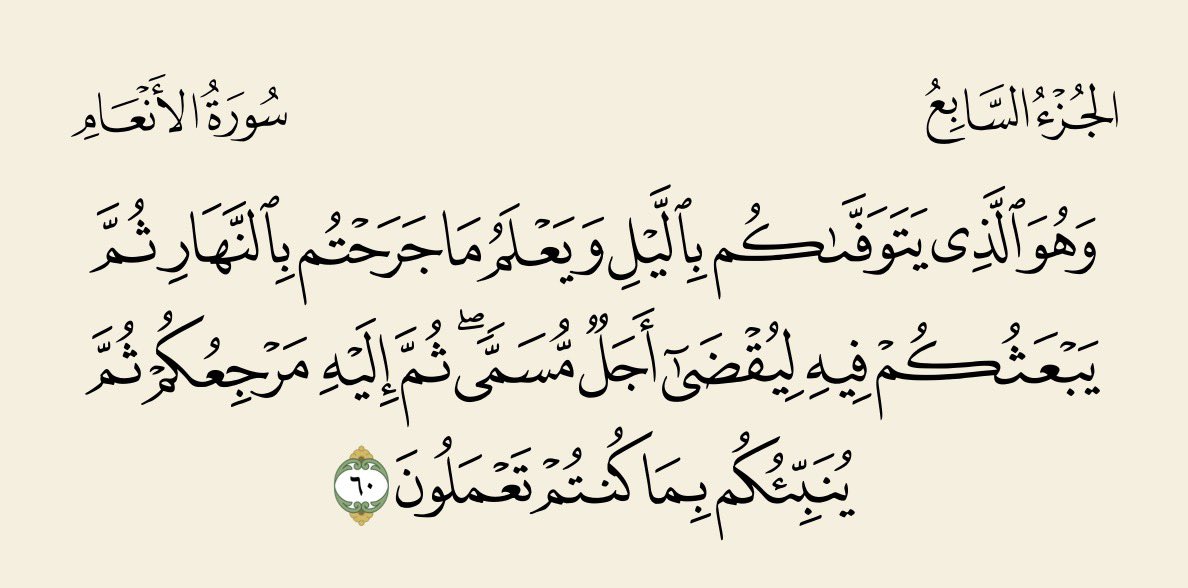 الجُزْءُ السَّابِعُ
سُورَةُ الأَنْعَامِ
وَهُوَ ٱلَّذِى يَتَوَفَّىٰكُم بِٱلَّيْلِ وَيَعْلَمُ مَا جَرَحْتُم بِٱلنَّهَارِ ثُمَّ
يَبْعَثُكُمْ فِيهِ لِيُقْضَىٰٓ أَجَلٌ مُّسَمًّى ۖ ثُمَّ إِلَيْهِ مَرْجِعُكُمْ ثُمَّ
يُنَبِّئُكُم بِمَا كُنتُمْ تَعْمَلُونَ ٦٠